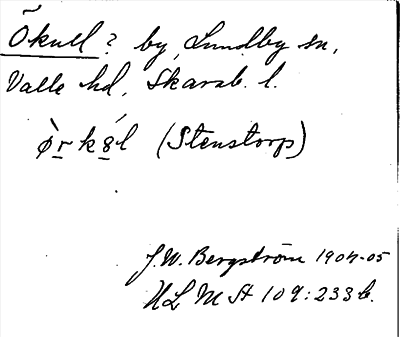 Ökull? by, Lundby sn,
Valle hd, Skarab. l.
ø̀r k8́l (Stenstorp)
J.W. Bergström 1904-05
ULMA 109:233 b.